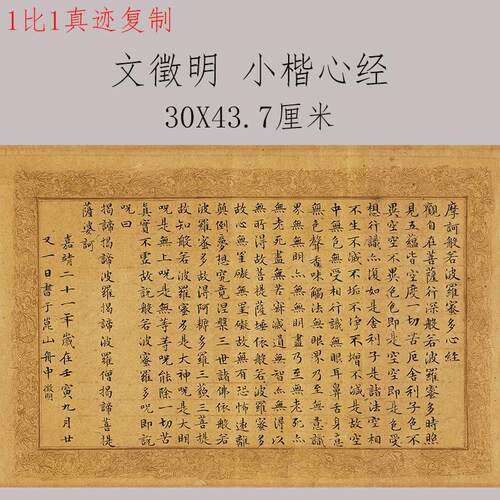 1比1真迹复制
文徵明 小楷心经
30X43.7厘米
摩訶般若波羅蜜多心經
觀自在菩薩行深般若波羅蜜多時照
見五蘊皆空度一切苦厄舍利子色不
異空空不異色色即是空空即是色受
想行識亦復如是舍利子是諸法空相
不生不滅不垢不淨不增不減是故空
中無色無受想行識無眼耳鼻舌身意
無色聲香味觸法無眼界乃至無意識
界無無明亦無無明盡乃至無老死亦
無老死盡無苦集滅道無智亦無得以
無所得故菩提薩埵依般若波羅蜜多
故心無罣礙無罣礙故無有恐怖遠離
顛倒夢想究竟涅槃三世諸佛依般若
波羅蜜多故得阿耨多羅三藐三菩提
故知般若波羅蜜多是大神呪是大明
呪是無上呪是無等等呪能除一切苦
真實不虛故說般若波羅蜜多呪即說
呪曰
揭諦揭諦波羅揭諦波羅僧揭諦菩提
薩婆訶
嘉靖二十一年歲在壬寅九月廿
又一日書于崑山舟中 徵明